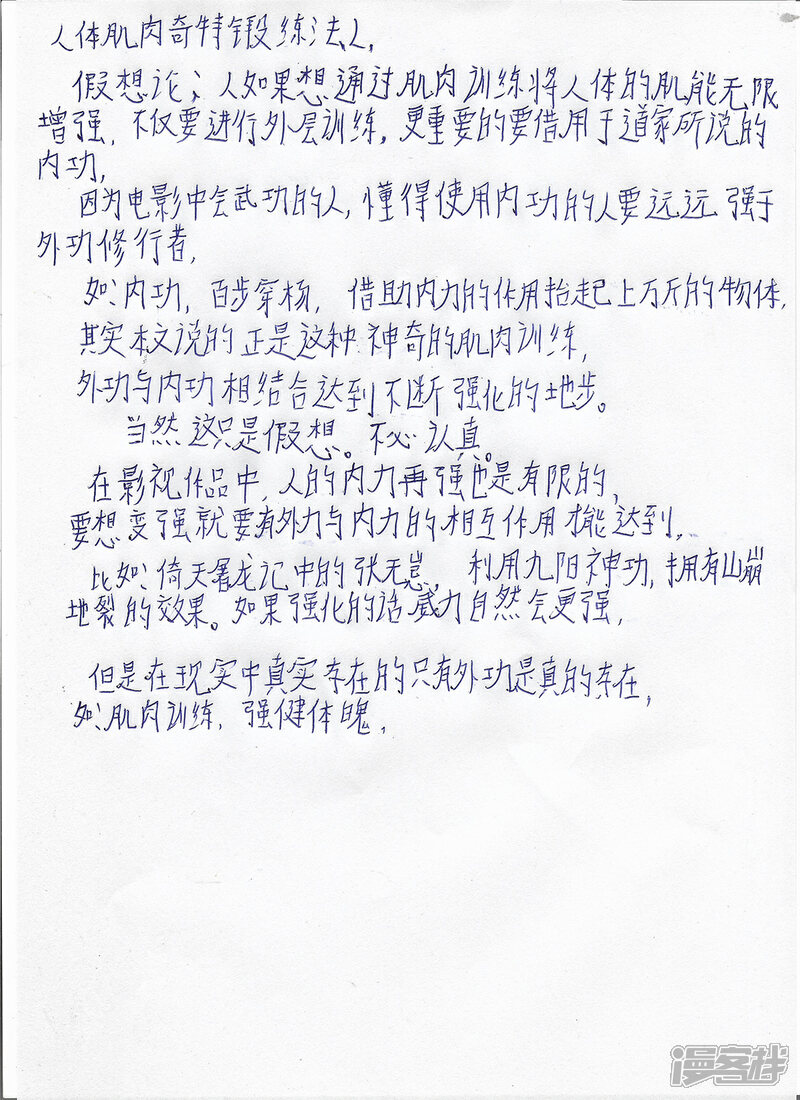 人体肌肉奇特锻练法人,
假想论:人如果想通过肌肉训练将人体的肌能无限
增强,不仅要进行外层训练,更重要的要借用于道家所说的
内功,
因为电影中会武功的人,懂得使用内功的人要远远强于
外功修行者,
如:内功,百步穿杨,借助内力的作用抬起上万斤的物体,
其实本文说的正是这种神奇的肌肉训练,
外功与内功相结合达到不断强化的地步。
当然这只是假想。不必认真。
在影视作品中,人的内力再强也是有限的,
要想变强就要有外力与内力的相互作用才能达到,
比如:倚天屠龙记中的张无忌,利用九阳神功,拥有山崩
地裂的效果。如果强化的话威力自然会更强,
但是在现实中真实存在的只有外功是真的存在,
如:肌肉训练,强健体魄,
漫客栈